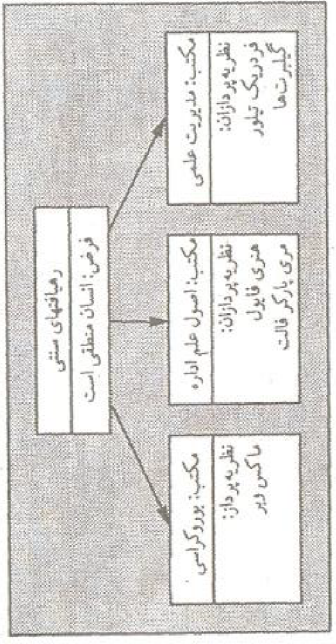 رهیافتهای سنتی
فرض: انسان منطقی است
مکتب: مدیریت علمی
نظریه پردازان:
فردریک تیلور
گیلبرت‌ها
مکتب: اصول علم اداره
نظریه پردازان:
هنری فایول
مری پارکر فالت
مکتب: بوروکراسی
نظریه پرداز:
ماکس وبر